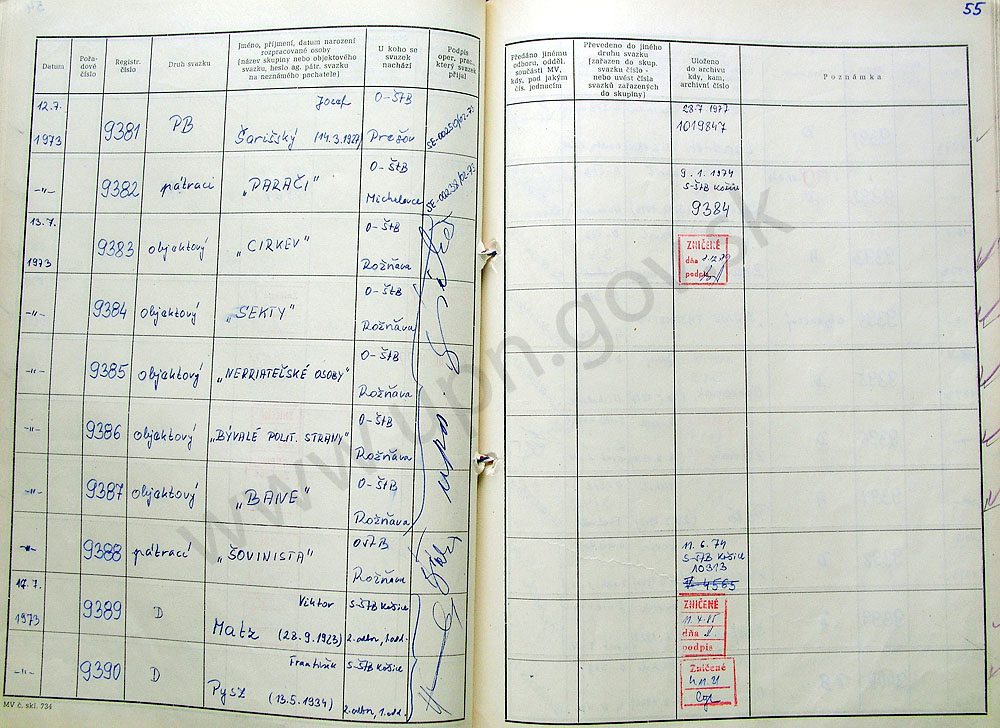 55
Datum
Pořadové číslo
Registr. číslo
Druh svazku
Jméno, příjmení, datum narození
rozpracované osoby
(název skupiny nebo objektového
svazku, heslo ag. pátr. svazku
na neznámého pachatele)
U koho se
svazek
nachází
Podpis
oper. prac.,
který svazek
přijal
Předáno jinému
odboru, odděl.
součásti MV,
kdy, pod jakým
čís. jednacím
Převedeno do jiného
druhu svazku
(zařazen do skup.
svazku číslo -
nebo uvést čísla
svazků zařazených
do skupiny)
Uloženo
do archivu
kdy, kam,
archivní číslo
Poznámka
12.7. Josef O-ŠTB 28.7 1977
1973 9381 PB Šarišský (14.3.1927) Prešov 1019847
O-ŠTB 9.1.1974
-"- 9382 pátrací „PARAČI" Michalovce S-ŠTB Košice
9384
13.7. O-ŠTB
1973 9383 objektový „CIRKEV" Rožňava ZNIČENÉ
dňa
podpis
O-ŠTB
-"- 9384 objektový „SEKTY" Rožňava
O-ŠTB
-"- 9385 objektový „NEPRIATEĽSKÉ OSOBY" Rožňava
O-ŠTB
-"- 9386 objektový „BÝVALÉ POLIT. STRANY" Rožňava
O-ŠTB
-"- 9387 objektový „BANE" Rožňava
OŠTB 11.6.74
-"- 9388 pátrací „ŠOVINISTA" Rožňava S-ŠTB Košice
10313
17.7. Viktor S-ŠTB Košice ZNIČENÉ
1973 9389 D Matz (28.9.1923) 2.odbor, 1.odd. dňa
podpis
František S-ŠTB Košice Zničené
-"- 9390 D Pysz (13.5.1934) 2.odbor, 1.odd.
MV č. skl. 734
www.upn.gov.sk